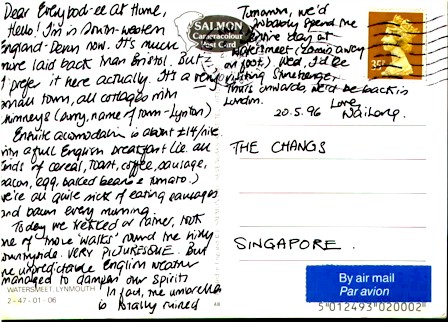 Dear Everybod-ee at Home,
Hello! I'm in South-western
England-Devon now. It's much
more laid back than Bristol. But
I prefer it here actually. It's a very
small town, all cottages with
chimneys (sorry, name of town-Lynton)
Ensuite acomodation is about £14/nite
with a full English breakfast (ie. all
kinds of cereal, toast, coffee, sausage,
bacon, egg, baked beans & tomato.)
We're all quite sick of eating sausages
and bacon every morning.
Today we trekked or rather, took
one of those 'walks' round the
countryside. VERY PICTURESQUE. But
the unpredictable English weather
managed to dampen our spirits
In fact, the umbrella
is totally ruined
WATERSMEET, LYNMOUTH
2-47-01-06
SALMON
Cameracolour
Post Card
Tomorrow, we'd
probably spend the
entire day at
Watersmeet (2 miles away
on foot.) Wed, I'd be
visiting Stonehenge.
Thurs onwards, we'd be back in
London.
Love,
20.5.96 Wai Leng.
THE CHANGS
SINGAPORE.
By air mail
Par avion
5 012493 020002